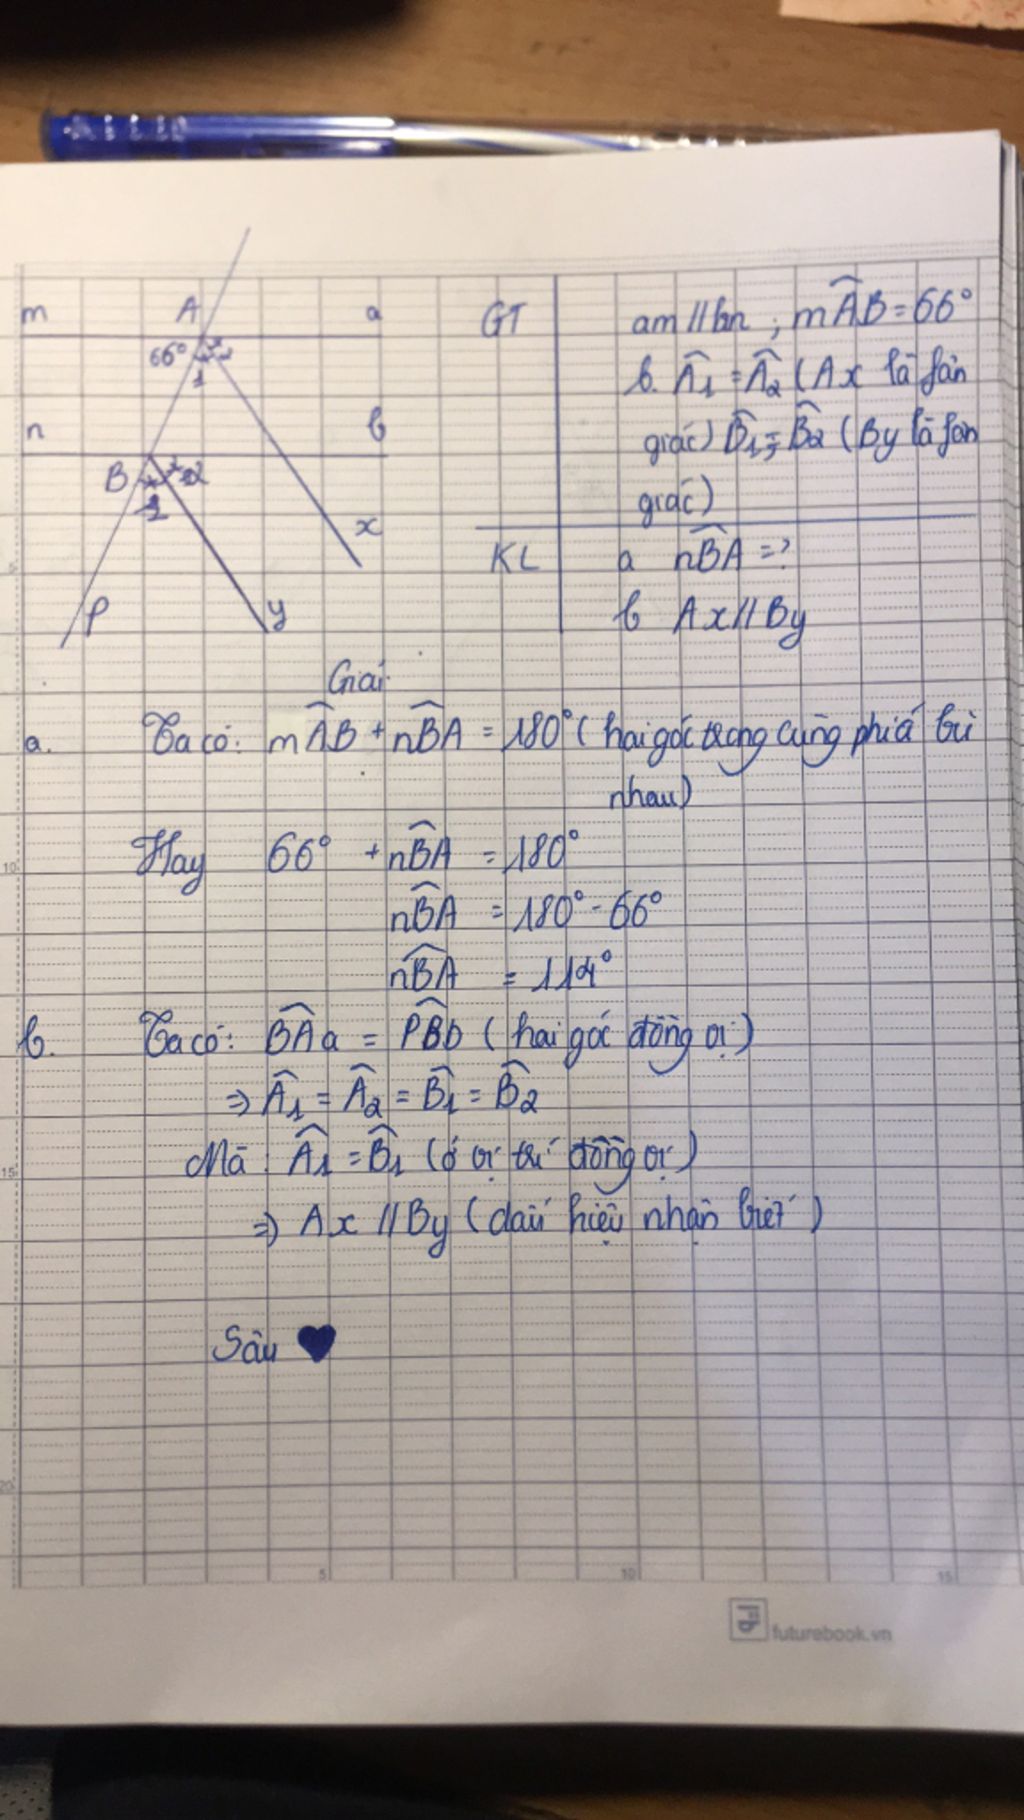 m A a
66° 1 2
n b
B 1 2
x
P y
GT am // bn ; mÂB = 66°
b. Â1 = Â2 (Ax là fân
giác) B̂1 = B̂2 (By là fân
giác)
KL a nB̂A = ?
b Ax // By
Giải
a. Ta có: mÂB + nB̂A = 180° (hai góc trong cùng phía bù
nhau)
Hay 66° + nB̂A = 180°
nB̂A = 180° - 66°
nB̂A = 114°
b. Ta có: BÂa = PB̂b (hai góc đồng vị)
⇒ Â1 = Â2 = B̂1 = B̂2
Mà : Â1 = B̂1 (ở vị trí đồng vị)
⇒ Ax // By (dấu hiệu nhận biết)
Sâu ♥
5
10
15
20
5 10 15
futurebook.vn